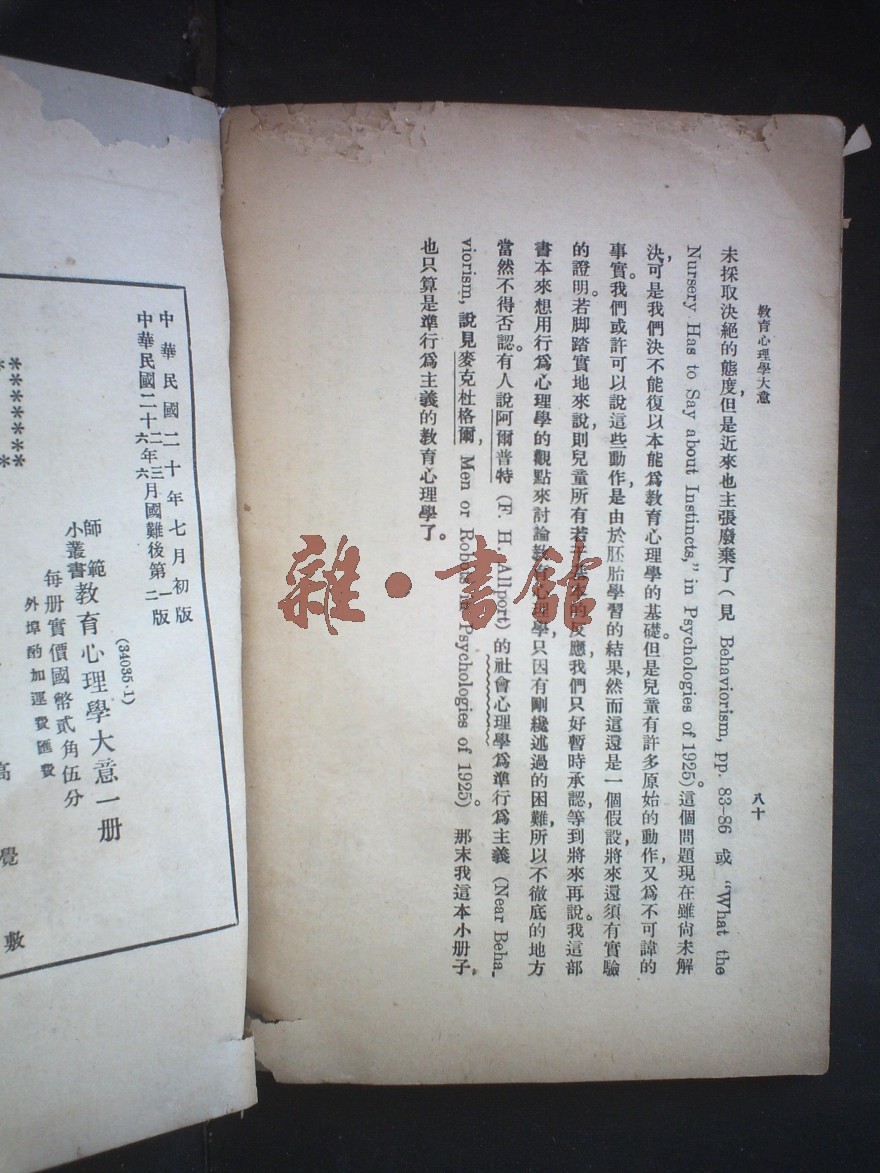 教育心理學大意
八十
未採取決絕的態度，但是近來也主張廢棄了（見 Behaviorism, pp. 83–86 或 “What the
Nursery Has to Say about Instincts,” in Psychologies of 1925）。這個問題現在雖尙未解
決，可是我們決不能復以本能爲教育心理學的基礎。但是兒童有許多原始的動作，又爲不可諱的
事實。我們或許可以說這些動作，是由於胚胎學習的結果，然而這還是一個假設，將來還須有實驗
的證明。若脚踏實地來說，則兒童所有若干基本的反應，我們只好暫時承認，等到將來再說。我這部
書本來想用行爲心理學的觀點來討論教育心理學，只因有剛纔述過的困難，所以不徹底的地方
當然不得否認。有人說阿爾普特 (F. H. Allport) 的社會心理學爲準行爲主義 (Near Beha-
viorism, 說見麥克杜格爾，Men or Robots in Psychologies of 1925)。那末我這本小册子，
也只算是準行爲主義的教育心理學了。
中華民國二十年七月初版
中華民國二十二年三月國難後第一版
六年六 二
(34035·1)
師範小叢書 教育心理學大意一册
每册實價國幣貳角伍分
外埠酌加運費匯費
高覺敷
雜·書館